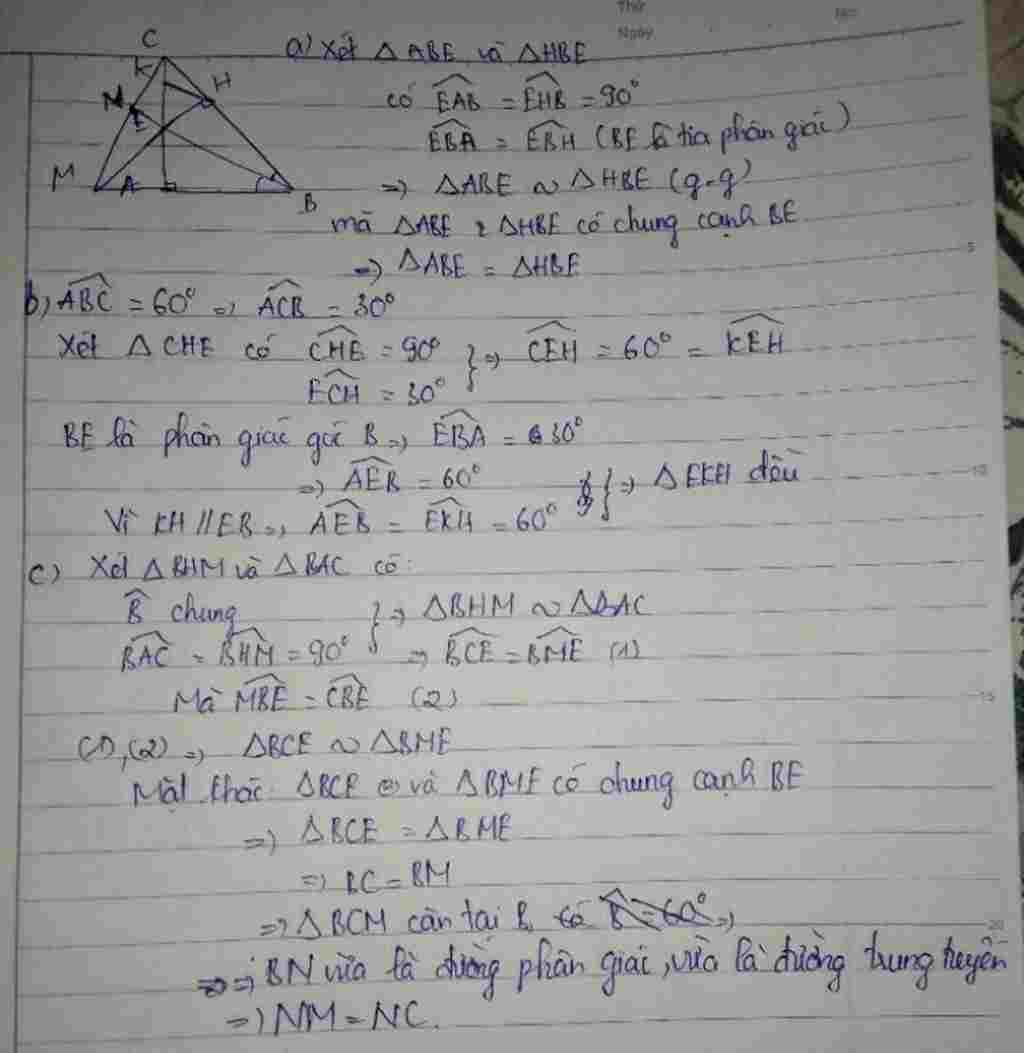 Thứ
Ngày
No:
C
K
H
N
E
M
A
B
a) Xét △ABE và △HBE
có \widehat{EAB} = \widehat{EHB} = 90°
\widehat{EBA} = \widehat{EBH} (BE là tia phân giác)
=> △ABE ~ △HBE (g-g)
mà △ABE & △HBE có chung cạnh BE
=> △ABE = △HBE
5
b) \widehat{ABC} = 60° => \widehat{ACB} = 30°
Xét △CHE có \widehat{CHE} = 90° } => \widehat{CEH} = 60° = \widehat{KEH}
\widehat{ECH} = 30°
BE là phân giác góc B => \widehat{EBA} = 30°
=> \widehat{AEB} = 60° } => △EKH đều
10
Vì KH // EB => \widehat{AEB} = \widehat{EKH} = 60°
c) Xét △BHM và △BAC có:
\widehat{B} chung } => △BHM ~ △BAC
\widehat{BAC} = \widehat{BHM} = 90° => \widehat{BCE} = \widehat{BME} (1)
Mà \widehat{MBE} = \widehat{CBE} (2)
15
(1), (2) => △BCE ~ △BME
Mặt khác △BCE và △BME có chung cạnh BE
=> △BCE = △BME
=> BC = BM
=> △BCM cân tại B có \widehat{B} = 60° =>
20
=> BN vừa là đường phân giác, vừa là đường trung tuyến
=> NM = NC.